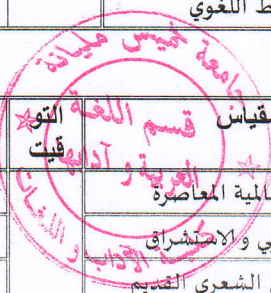 ط اللغوي
جامعة خميس مليانة
قسم اللغة
العربية و آدابها
كلية الآداب و اللغات
قياس
التو
قيت
المية المعاصرة
ي والاستشراق
الشعري القديم